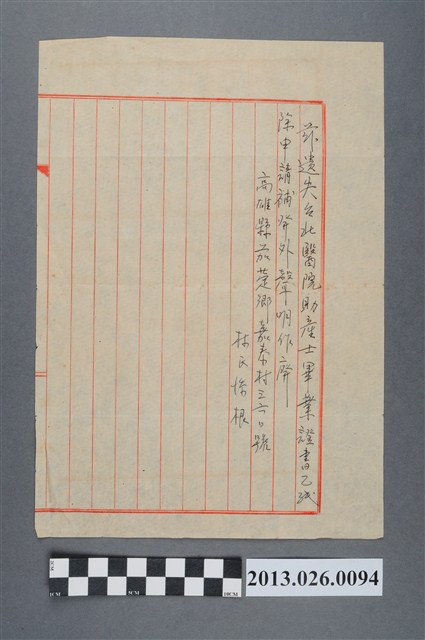 茲遺失台北醫院助產士畢業證書乙紙
除申請補發外聲明作廢
高雄縣茄萣鄉嘉泰村三六口號
林氏 根
1CM
5CM
10CM
2013.026.0094